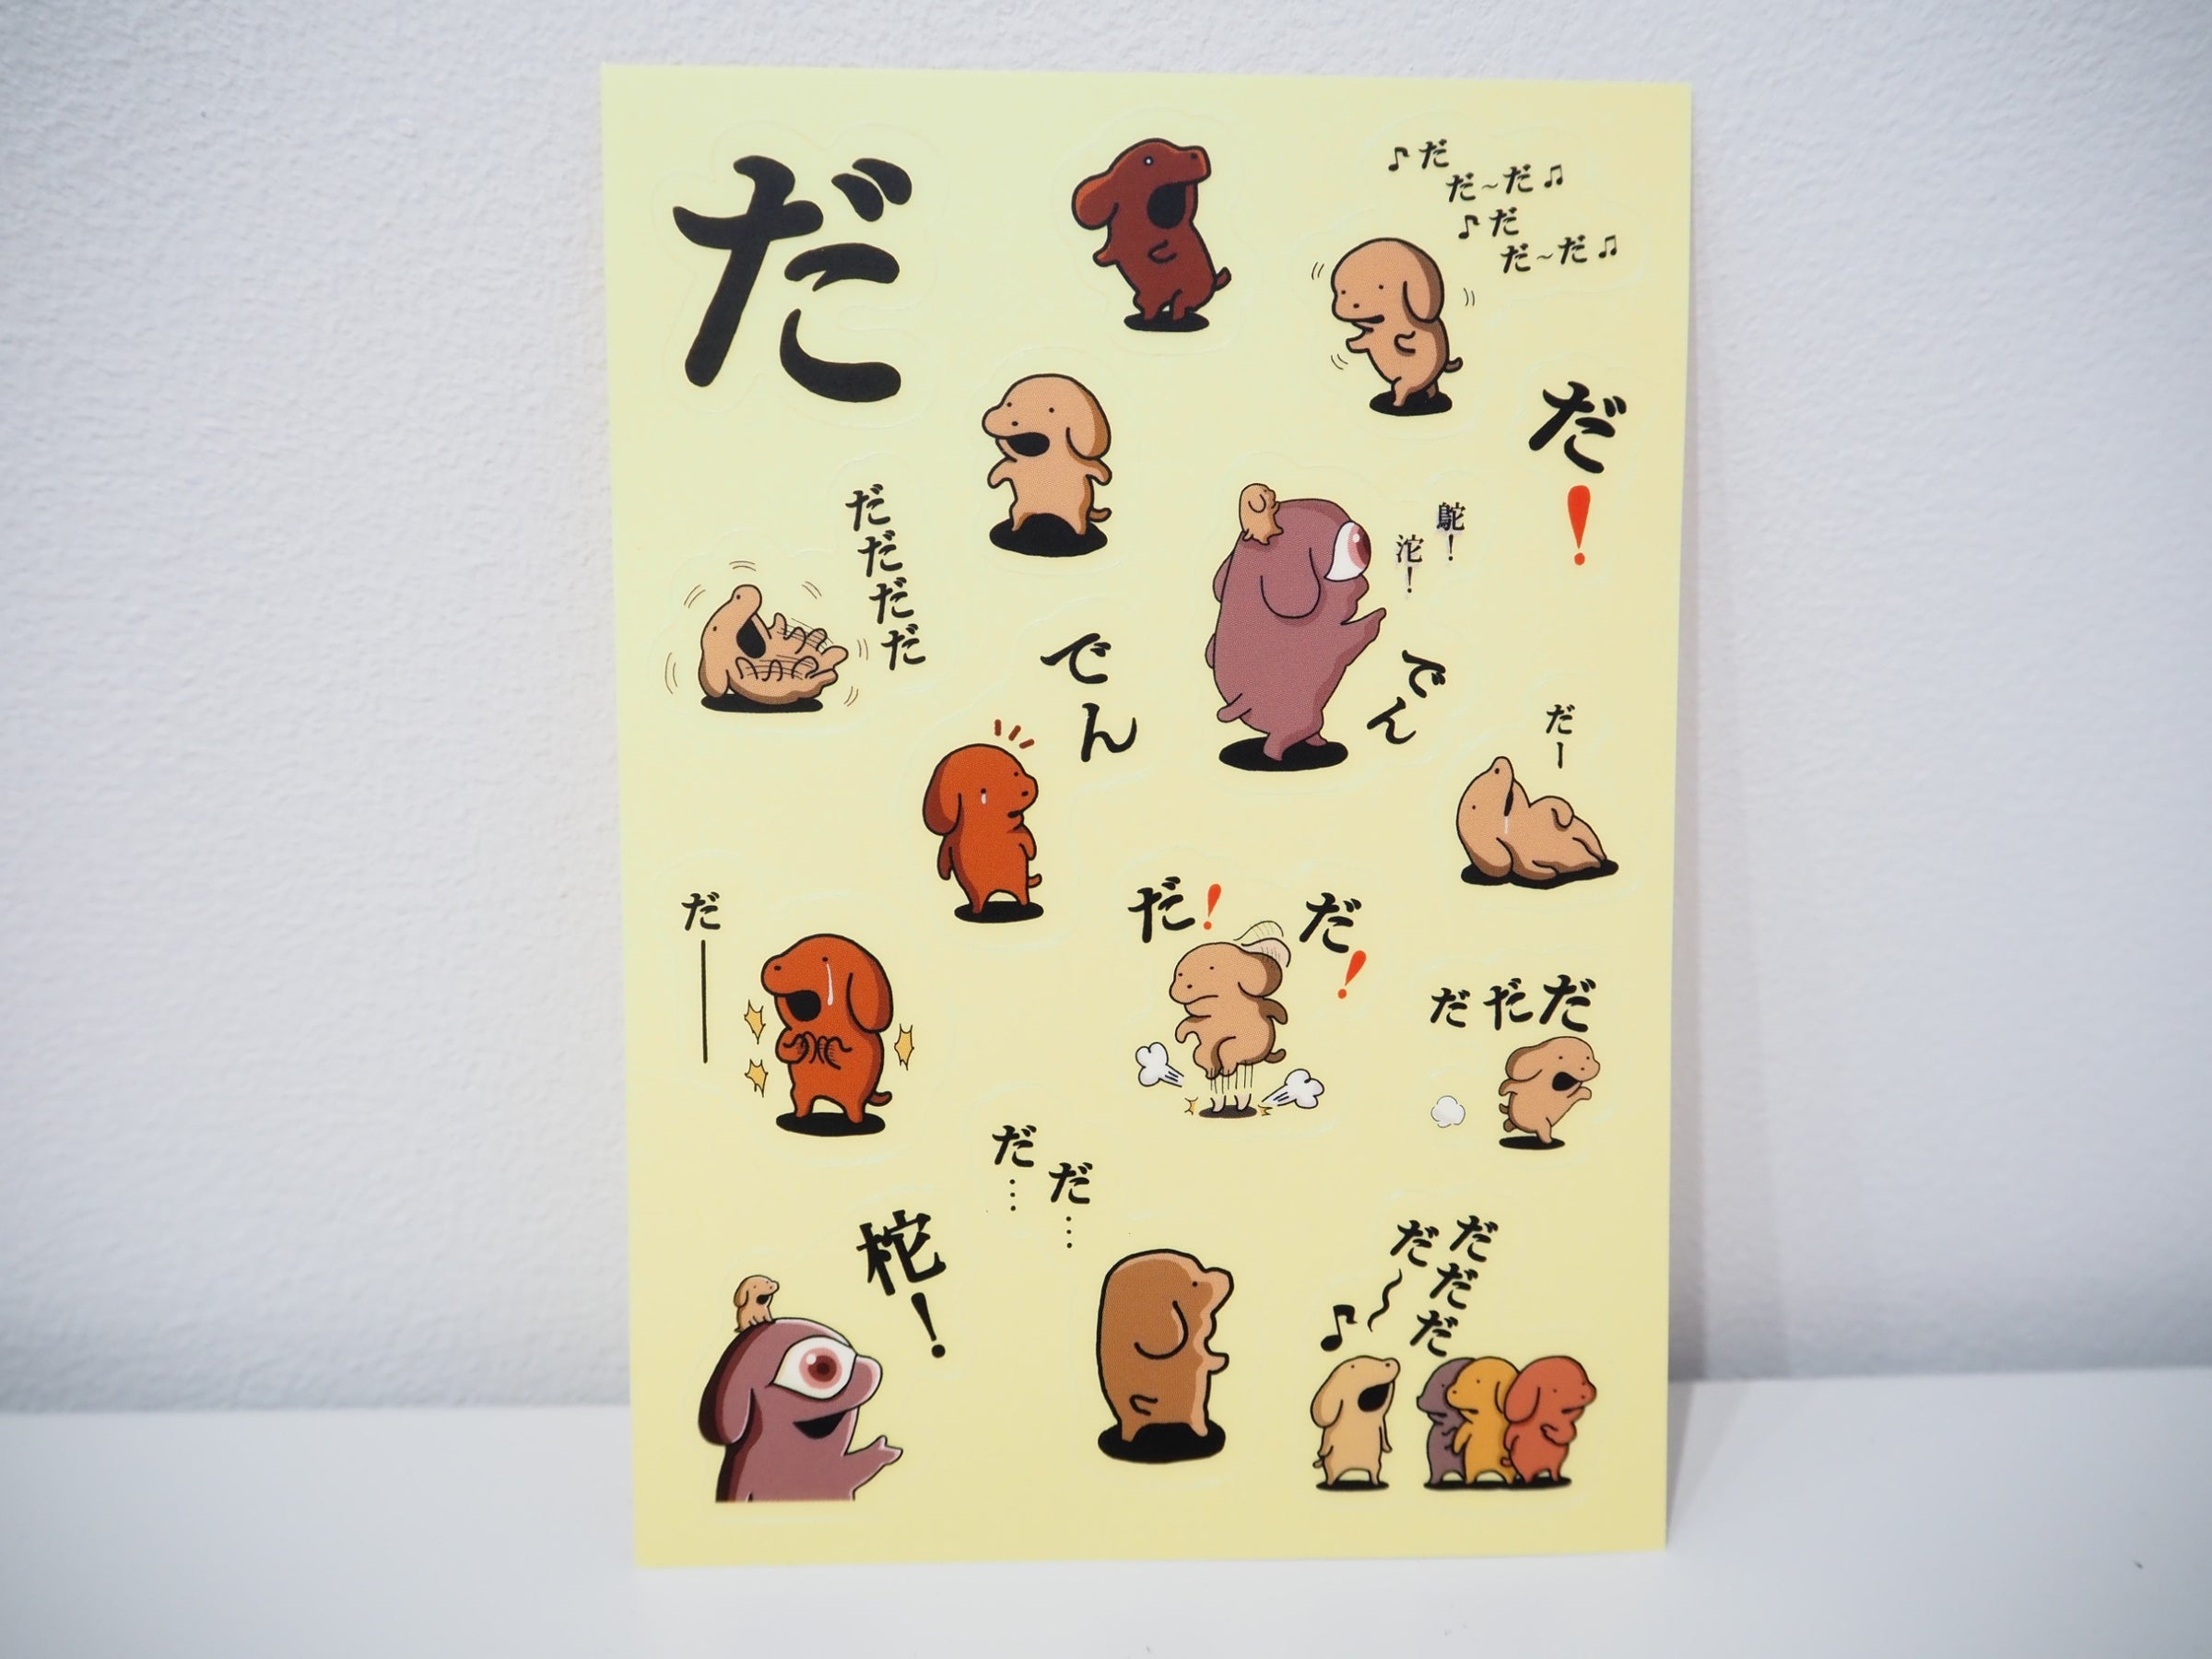 だ
♪だ
だ~だ♫
♪だ
だ~だ♫
だ!
だだだだ
鴕!
沱!
でん
でん
だー
だー
だ!
だ!
だだだ
だ…
だ…
柁!
だだだ
だ～♪